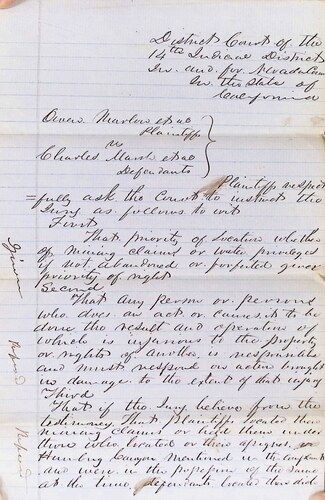 District Court of the
14th Judicial District
In and for Nevada Co
In the State of
California
Owen Marlow et al
Plaintiffs
vs
Charles Marsh et al
Defendants
Plaintiffs respect
=fully ask the Court to instruct the
Jury as follows to wit
First
That priority of location whether
of mining claims or water privileges
if not abandoned or forfeited gives
priority of right
Second
That any person or persons
who does an act or causes it to be
done the result and operation of
which is injurious to the property
or rights of another is responsible
and must respond on action brought
in damage to the extent of that injury
Third
That if the Jury believe from the
testimony that plaintiffs located their
mining claims or hold them under
those who located or their assignees, on
Humbug Canyon mentioned in the complaint
and were in the possession of the same
at the time defendants located their ditch
Given
Refused
Refused